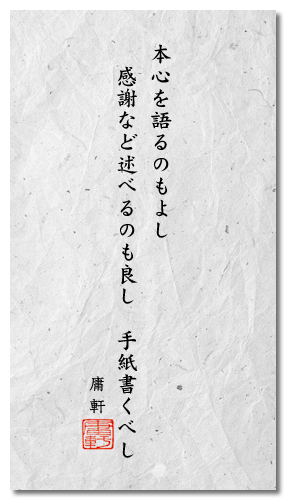 本心を語るのもよし
感謝など述べるのも良し　手紙書くべし
庸軒